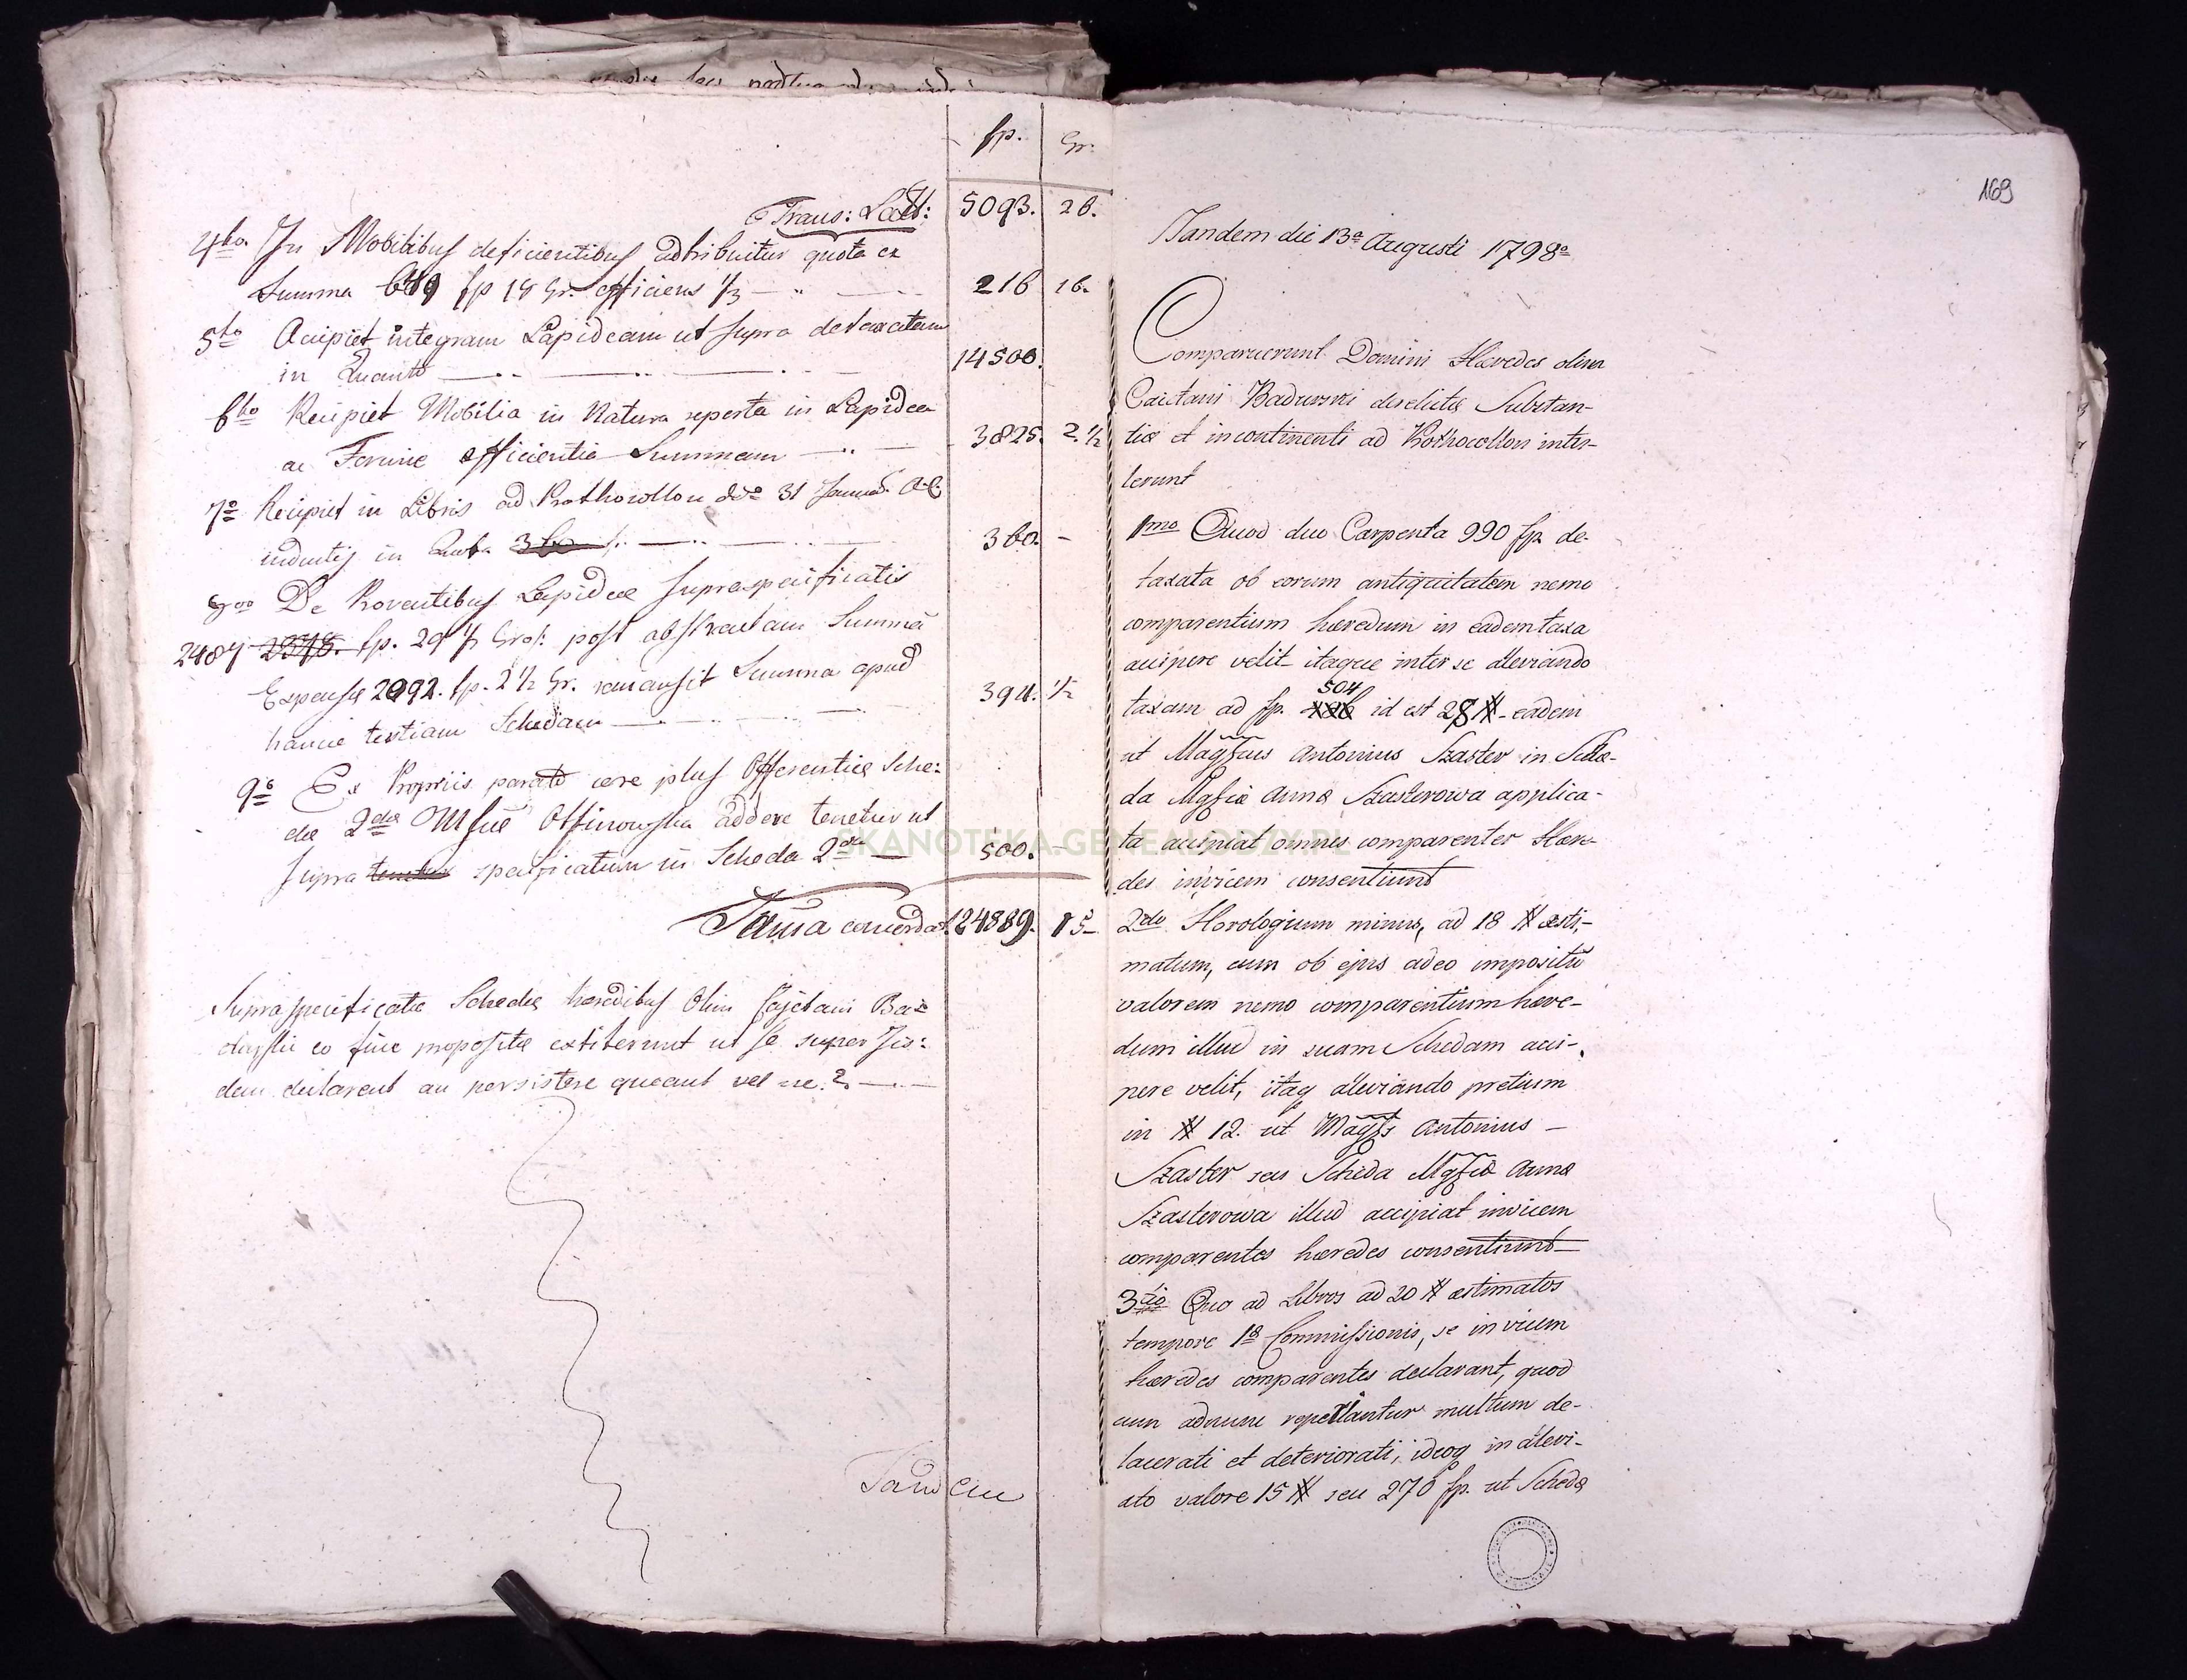 fp. Gr.
Trans: Latt: 5093. 26.
4to. In Mobilibus deficientibus adtribuitur quota ex
Summa 649 fp 18 Gr. efficiens 1/3 216 16.
5to Accipiet integram Lapideam ut supra detaxatam
in Quanto 14500.
6to Recipiet Mobilia in Natura reperta in Lapidea
ac Fervine efficientia Summam 3825. 2 1/2
7o Recipiet in Libris ad Prothocollon dto 31 Januar. a. c.
inductis in Quota 360 360. -
8vo De Proventibus Lapideae supraspecificatis
2487 2378. fp. 29 1/2 Gros: post abstractam Summā
Expensae 2092. fp. 2 1/2 Gr. remansit Summa apud
hancce tertiam Schedam 394. 1/2
9o Ex Propriis parato aere plus Offerentiae Sche:
dae 2dae Mfcae Offinowska addere tenetur ut
supra tenetur specificatum in Scheda 2da 500. -
Sūma concordat. 24889. 15
Supraspecificatae Schedae haeredibus Olim Cajetani Ba:
durski eo fine propositae extiterunt ut se super iis:
dem declarent an persistere queant vel ne?
Tandem
169
Tandem die 13a Augusti 1798o
Comparuerunt Domini Haeredes olim
Caietani Badurski derelictae Substan-
tiae et incontinenti ad Prothocollon intu-
lerunt
1mo Quod duo Carpenta 990 fp. de-
taxata ob eorum antiquitatem nemo
comparentium haeredum in eadem taxa
accipere velit itaque inter se alleviando
504
taxam ad fp. 486 id est 28 # eadem
ut Magfcus Antonius Szaster in Sche-
da Mgfcae Anna Szasterowa applica-
ta accipiat omnes comparentes Haere-
des invicem consentiunt
2do Horologium minus, ad 18 # aesti-
matum, cum ob ejus adeo impositū
valorem nemo comparentium haere-
dum illud in suam Schedam acci-
pere velit, itaq alleviando pretium
in # 12. ut Magfs Antonius -
Szaster seu Scheda Mgfcae Anna
Szasterowa illud accipiat invicem
comparentes haeredes consentiunt
3tio Quo ad Libros ad 20 # aestimatos
tempore 1ae Commissionis, se invicem
haeredes comparentes declarant, quod
cum adnunc reperiantur multum de-
lacerati et deteriorati, ideoq in allevi-
ato valore 15 # seu 270 fp. ut Scheda
SKANOTEKA.GENEALODZY.PL